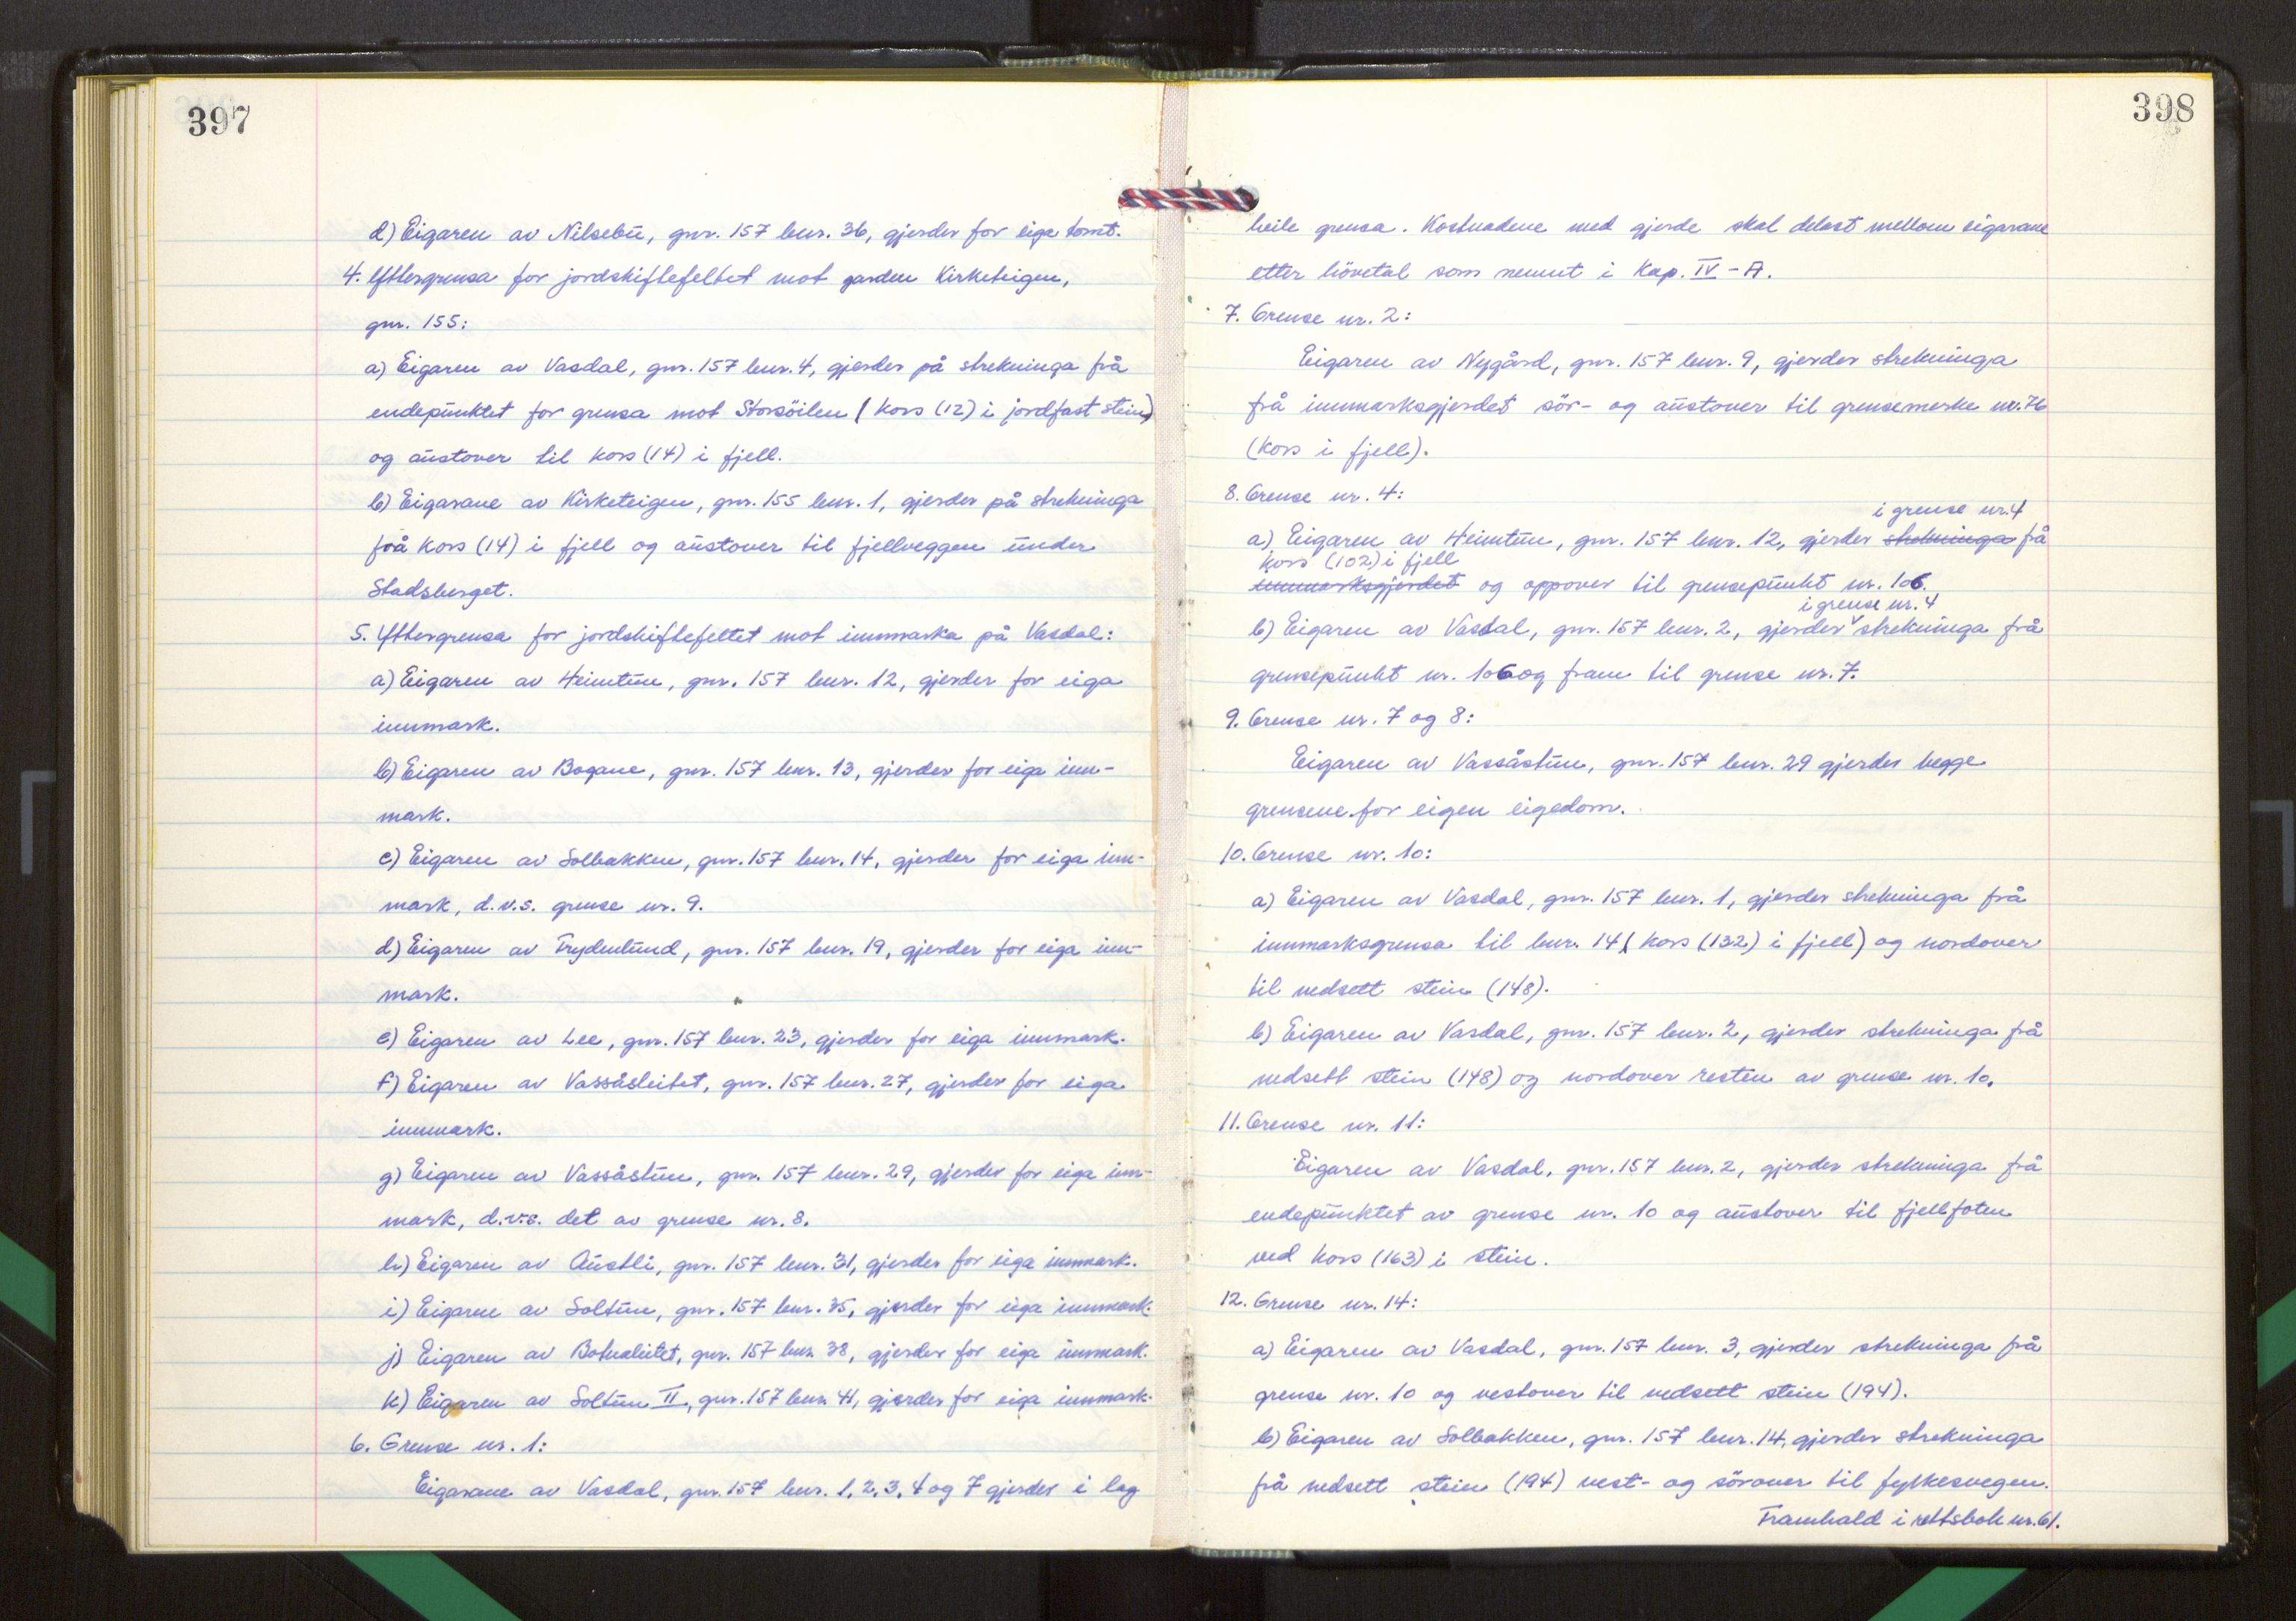 397
d) Eigaren av Nilsebu, gnr. 157 bnr. 36, gjerder for eiga tomt.
4. Yttergrensa for jordskiftefeltet mot garden Kirketeigen,
gnr. 155:
a) Eigaren av Vasdal, gnr. 157 bnr. 4, gjerder på strekninga frå
endepunktet for grensa mot Storsöilen (kors (12) i jordfast stein)
og austover til kors (14) i fjell.
b) Eigarane av Kirketeigen, gnr. 155 bnr. 1, gjerder på strekninga
frå kors (14) i fjell og austover til fjellveggen under
Stadsberget.
5. Yttergrensa for jordskiftefeltet mot innmarka på Vasdal:
a) Eigaren av Heimtun, gnr. 157 bnr. 12, gjerder for eiga
innmark.
b) Eigaren av Bogane, gnr. 157 bnr. 13, gjerder for eiga inn-
mark.
c) Eigaren av Solbakken, gnr. 157 bnr. 14, gjerder for eiga inn-
mark, d.v.s. grense nr. 9.
d) Eigaren av Frydenlund, gnr. 157 bnr. 19, gjerder for eiga inn-
mark.
e) Eigaren av Lee, gnr. 157 bnr. 23, gjerder for eiga innmark.
f) Eigaren av Vassåsleitet, gnr. 157 bnr. 27, gjerder for eiga
innmark.
g) Eigaren av Vassåstun, gnr. 157 bnr. 29, gjerder for eiga inn-
mark, d.v.s. det av grense nr. 8.
h) Eigaren av Austli, gnr. 157 bnr. 31, gjerder for eiga innmark.
i) Eigaren av Soltun, gnr. 157 bnr. 35, gjerder for eiga innmark.
j) Eigaren av gnr. 157 bnr. 38, gjerder for eiga innmark.
k) Eigaren av Soltun II, gnr. 157 bnr. 41, gjerder for eiga innmark.
6. Grense nr. 1:
Eigarane av Vasdal, gnr. 157 bnr. 1, 2, 3, 4 og 7 gjerder i lag
398
heile grensa. Kostnadene med gjerde skal delast mellom eigarane
etter hövetal som nemnt i Kap. IV - A.
7. Grense nr. 2:
Eigaren av Nygård, gnr. 157 bnr. 9, gjerder strekninga
frå innmarksgjerdet sör- og austover til grensemerke nr. 76
(kors i fjell).
8. Grense nr. 4:
i grense nr. 4
a) Eigaren av Heimtun, gnr. 157 bnr. 12, gjerder strekninga frå
kors (102) i fjell
innmarksgjerdet og oppover til grensepunkt nr. 106.
i grense nr. 4
b) Eigaren av Vasdal, gnr. 157 bnr. 2, gjerder strekninga frå
grensepunkt nr. 106 og fram til grense nr. 7.
9. Grense nr. 7 og 8:
Eigaren av Vassåstun, gnr. 157 bnr. 29 gjerder begge
grensene for eigen eigedom.
10. Grense nr. 10:
a) Eigaren av Vasdal, gnr. 157 bnr. 1, gjerder strekninga frå
innmarksgrensa til bnr. 14 (kors (132) i fjell) og nordover
til nedsett stein (148).
b) Eigaren av Vasdal, gnr. 157 bnr. 2, gjerder strekninga frå
nedsett stein (148) og nordover resten av grense nr. 10.
11. Grense nr. 11:
Eigaren av Vasdal, gnr. 157 bnr. 2, gjerder strekninga frå
endepunktet av grense nr. 10 og austover til fjellfoten
ved kors (163) i stein.
12. Grense nr. 14:
a) Eigaren av Vasdal, gnr. 157 bnr. 3, gjerder strekninga frå
grense nr. 10 og vestover til nedsett stein (194).
b) Eigaren av Solbakken, gnr. 157 bnr. 14, gjerder strekninga
frå nedsett stein (194) vest- og sörover til fylkesvegen.
Framhald i rettsbok nr. 61.